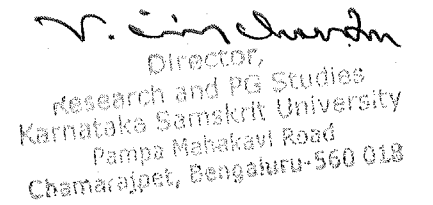 V.
Director,
Research and PG Studies
Karnataka Samskrit University
Pampa Mahakavi Road
Chamarajpet, Bengaluru-560 018